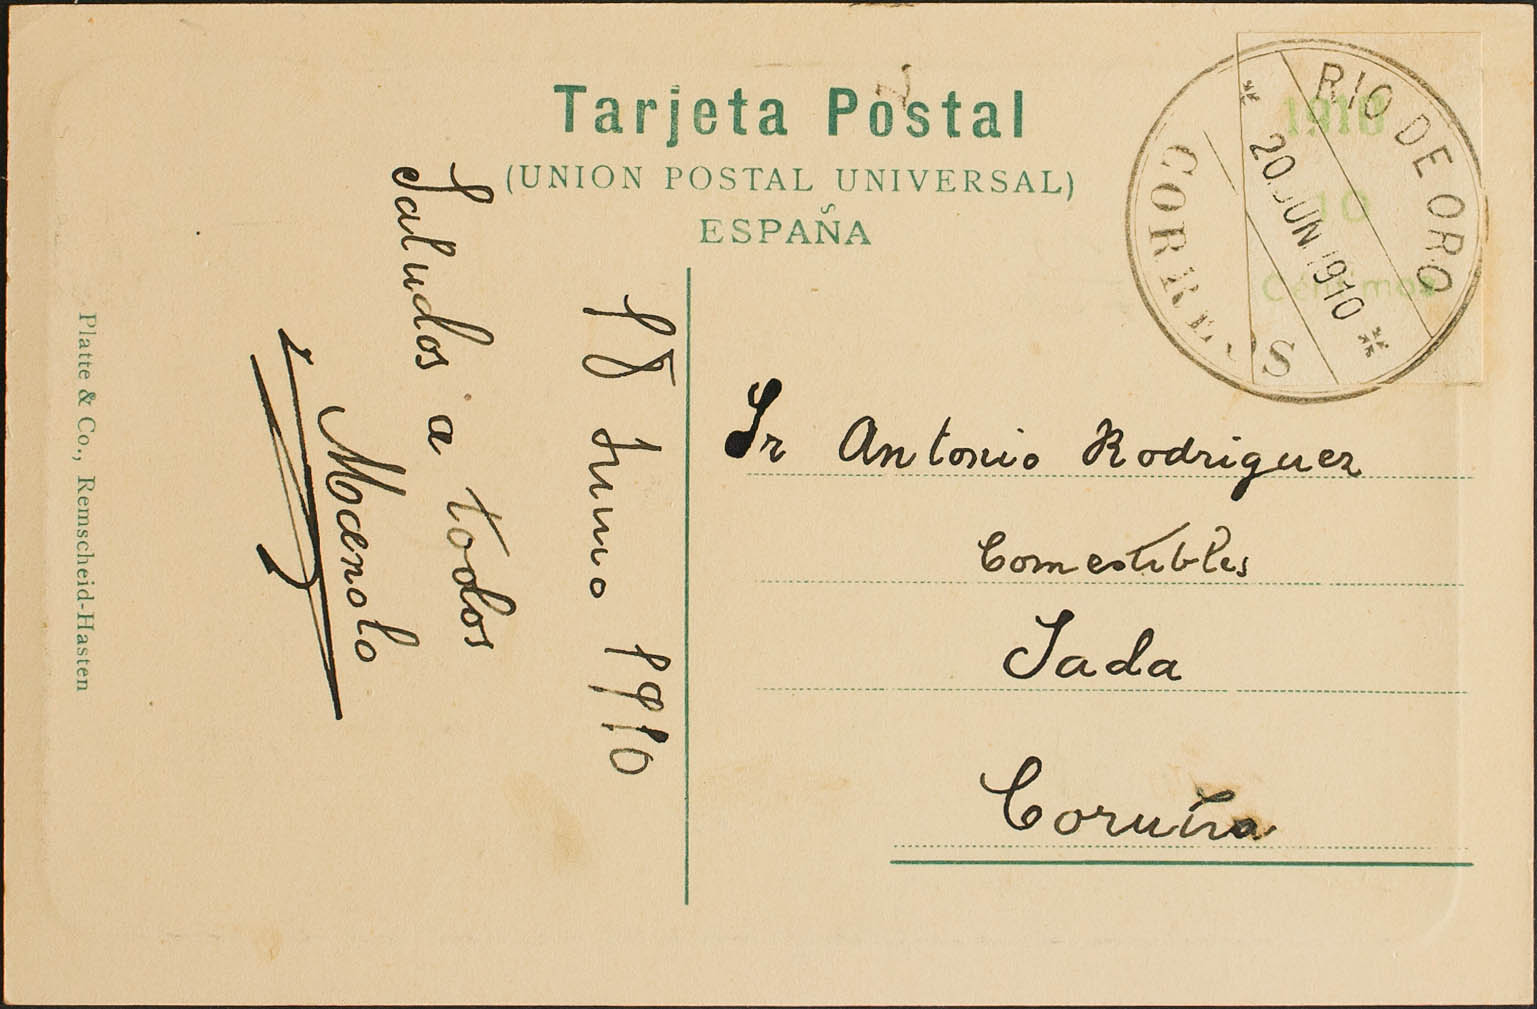 Tarjeta Postal
(UNION POSTAL UNIVERSAL)
ESPAÑA
RIO DE ORO
20.JUN.1910
CORREOS
1910
10
Céntimos
Sr Antonio Rodriguez
Comestibles
Sada
Coruña
18 Junio 1910
Saludos a todos
Manolo
Platte & Co., Remscheid-Hasten